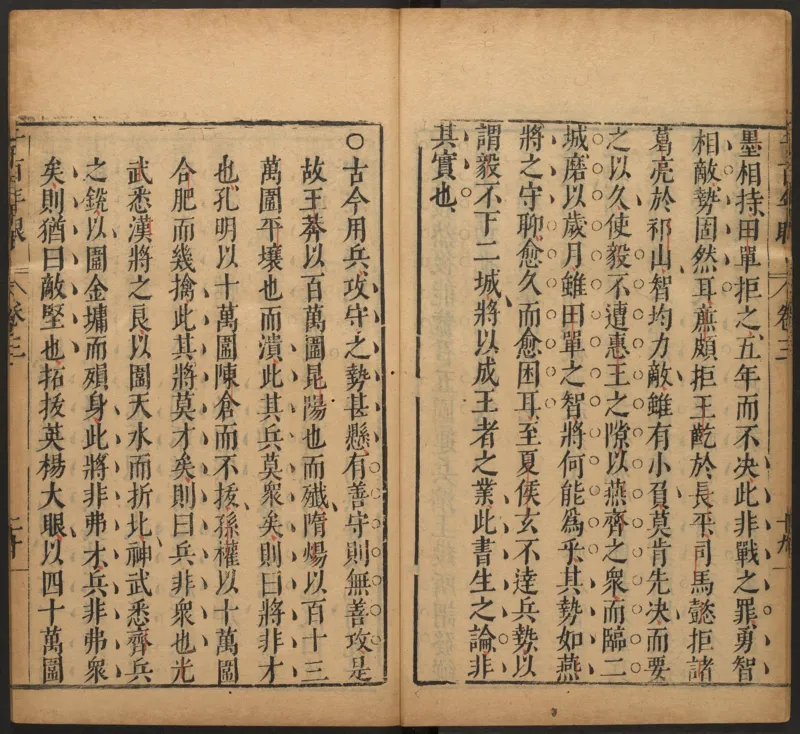 墨相持田單拒之五年而不决此非戰之罪勇智
相敵勢固然耳亷頗拒王齕於長平司馬懿拒諸
葛亮於祁山智均力敵雖有小負莫肯先决而要
之以久使毅不遭惠王之隙以燕齊之衆而臨二
城磨以歲月雖田單之智將何能爲乎其勢如燕
將之守聊愈久而愈困耳至夏侯玄不達兵勢以
謂毅不下二城將以成王者之業此書生之論非
其實也
○古今用兵攻守之勢甚懸有善守則無善攻是
故王莽以百萬圖昆陽也而殱隋煬以百十三
萬圖平壤也而潰此其兵莫衆矣則曰將非才
也孔明以十萬圖陳倉而不拔孫權以十萬圖
合肥而幾擒此其將莫才矣則曰兵非衆也光
武悉漢將之良以圖天水而折北神武悉齊兵
之銳以圖金墉而殞身此將非弗才兵非弗衆
矣則猶曰敵堅也拓拔英楊大眼以四十萬圖
卷三
十九
卷三
二十